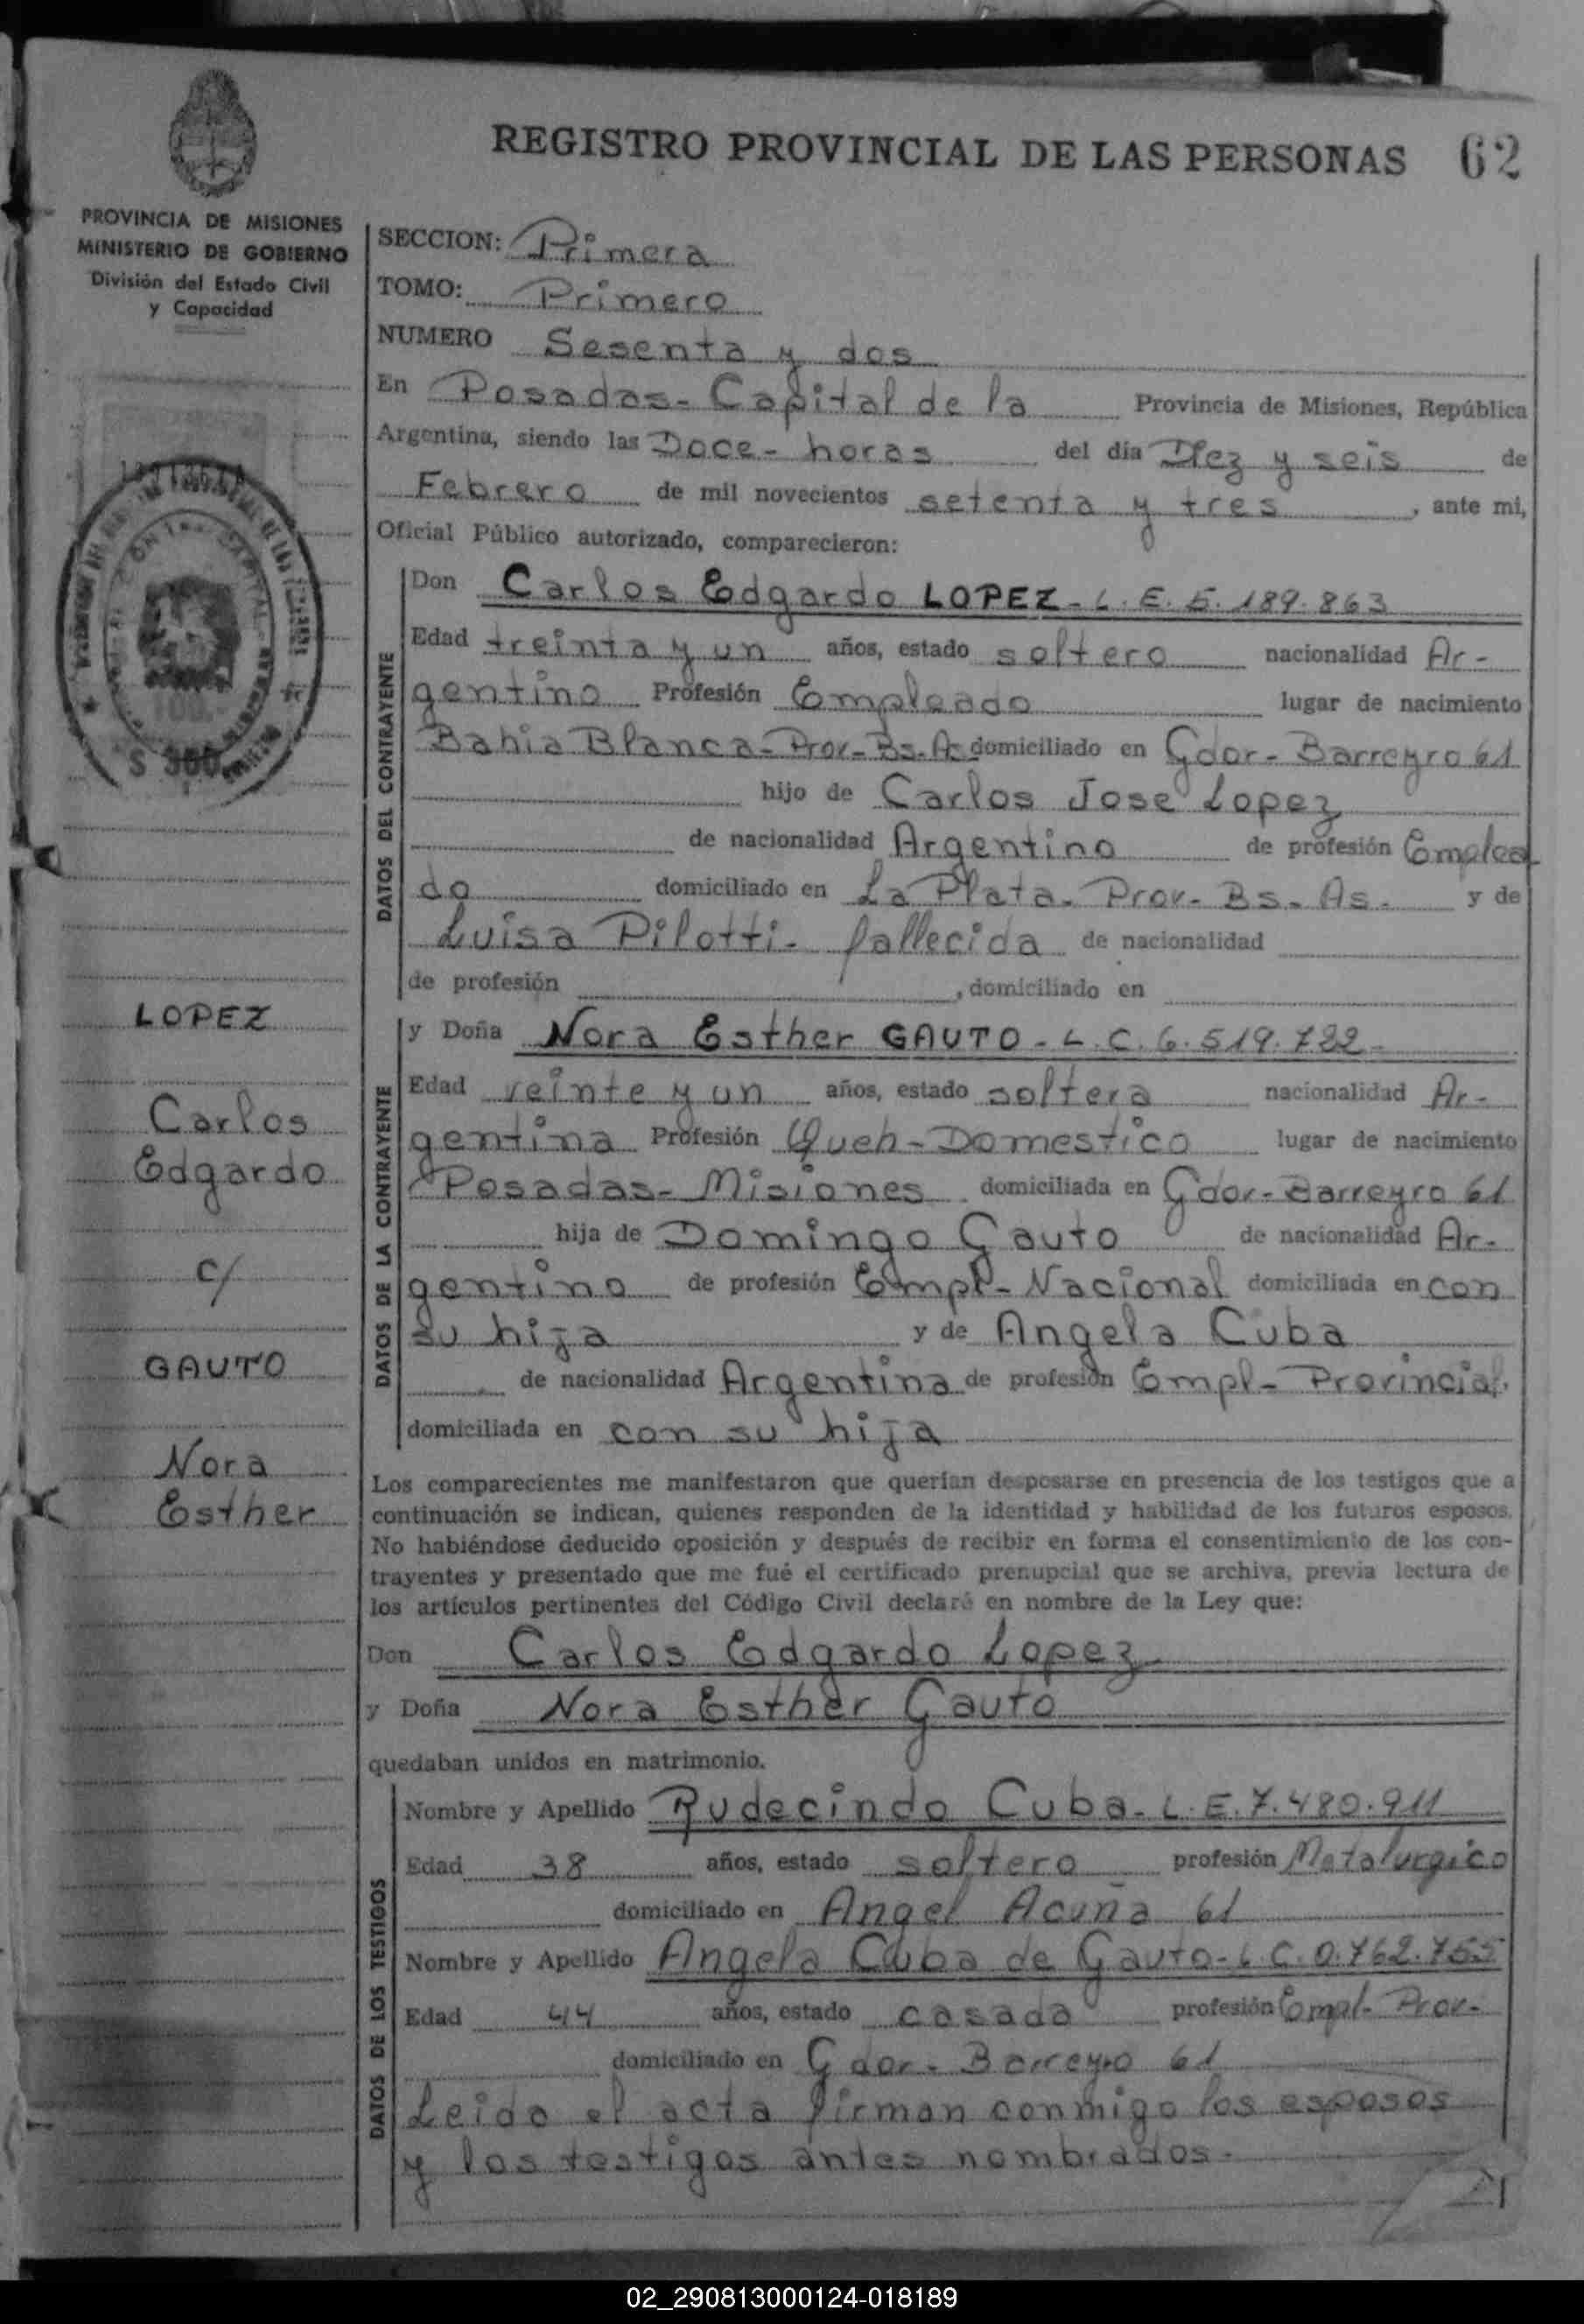 REGISTRO PROVINCIAL DE LAS PERSONAS 62
PROVINCIA DE MISIONES
MINISTERIO DE GOBIERNO
División del Estado Civil
y Capacidad
SECCION: Primera
TOMO: Primero
NUMERO Sesenta y dos
En Posadas - Capital de la Provincia de Misiones, República
Argentina, siendo las Doce - horas del día Diez y seis de
Febrero de mil novecientos setenta y tres, ante mi,
Oficial Público autorizado, comparecieron:
DATOS DEL CONTRAYENTE
Don Carlos Edgardo LOPEZ - L. E. 5.189.863
Edad treinta y un años, estado soltero nacionalidad Ar-
gentino Profesión Empleado lugar de nacimiento
Bahia Blanca - Prov - Bs. As domiciliado en Gdor - Barreyro 61
hijo de Carlos Jose Lopez
de nacionalidad Argentino de profesión Emplea
do domiciliado en La Plata - Prov - Bs - As. y de
Luisa Pilotti - fallecida de nacionalidad
de profesión , domiciliado en
DATOS DE LA CONTRAYENTE
y Doña Nora Esther GAUTO - L. C. 6.519.722
Edad veinte y un años, estado soltera nacionalidad Ar-
gentina Profesión Queh - Domestico lugar de nacimiento
Posadas - Misiones domiciliada en Gdor - Barreyro 61
hija de Domingo Gauto de nacionalidad Ar-
gentino de profesión Empl - Nacional domiciliada en con
su hija y de Angela Cuba
de nacionalidad Argentina de profesión Empl - Provincial
domiciliada en con su hija
Los comparecientes me manifestaron que querían desposarse en presencia de los testigos que a
continuación se indican, quienes responden de la identidad y habilidad de los futuros esposos.
No habiéndose deducido oposición y después de recibir en forma el consentimiento de los con-
trayentes y presentado que me fué el certificado prenupcial que se archiva, previa lectura de
los artículos pertinentes del Código Civil declaré en nombre de la Ley que:
Don Carlos Edgardo Lopez
y Doña Nora Esther Gauto
quedaban unidos en matrimonio.
DATOS DE LOS TESTIGOS
Nombre y Apellido Rudecindo Cuba - L. E. 7.480.911
Edad 38 años, estado soltero profesión Metalurgico
domiciliado en Angel Acuña 61
Nombre y Apellido Angela Cuba de Gauto - L. C. 0.762.755
Edad 44 años, estado casada profesión Empl - Prov -
domiciliado en Gdor - Barreyro 61
Leido el acta firman conmigo los esposos
y los testigos antes nombrados.
LOPEZ
Carlos
Edgardo
c/
GAUTO
Nora
Esther
02_290813000124-018189